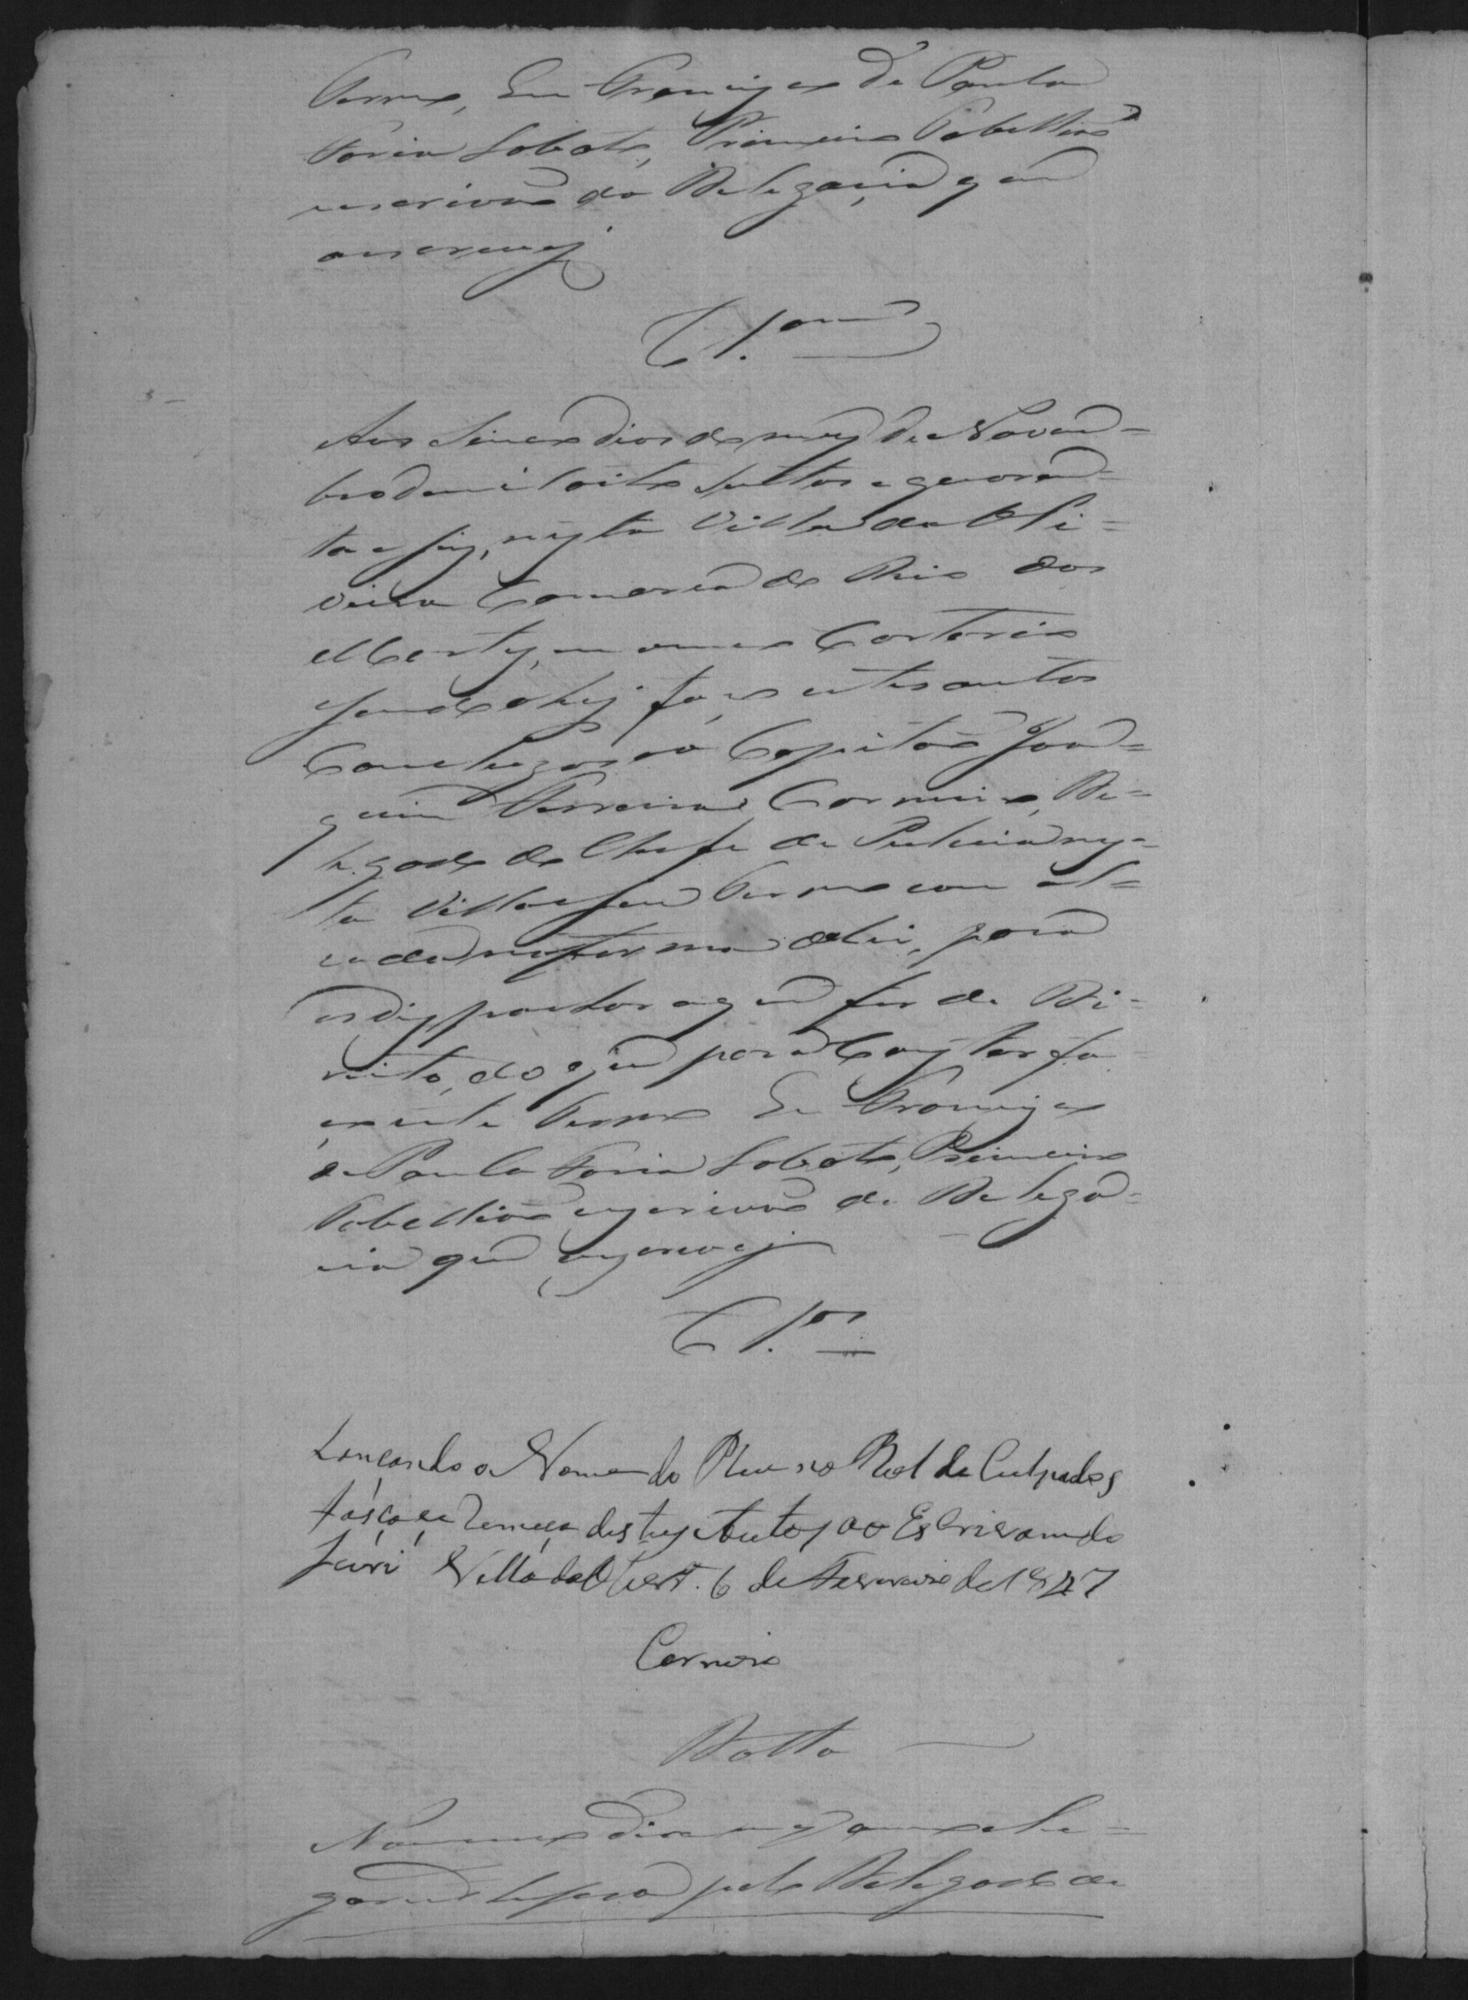 Termo, Eu Francisco de Paula
Faria Lobato, Primeiro Tabellião
escrivão da Delegacia que
o escrevy
Cl.os
Aos Sinco dias do mez de Novem=
bro de mil oito Centos e quaren=
ta e seis, nesta Villa da Oli=
veira Comarca do Rio das
Mortes, em meu Cartorio
faço estes autos
Conclusos ao Capitão Joa=
quim Ferreira Carneiro, De=
legado do Chefe de Policia nes=
ta Villa e seu Termo com al=
çada na forma da lei, para
os despachar o que for de Di=
reito, do que para Constar fa
ço este Termo Eu Francisco
de Paula Faria Lobato, Primeiro
Tabellião escrivão da Delega=
cia que escrevy
Cl.os
Lançando o Nome do Reu no Rol de Culpados
fáça remeça destes Autos ao Escrivam do
Juri Villa da Olivr.ª 6 de Fevereiro de 1847
Carneiro
Datta
No mesmo dia mez e anno
pelo Delegado de